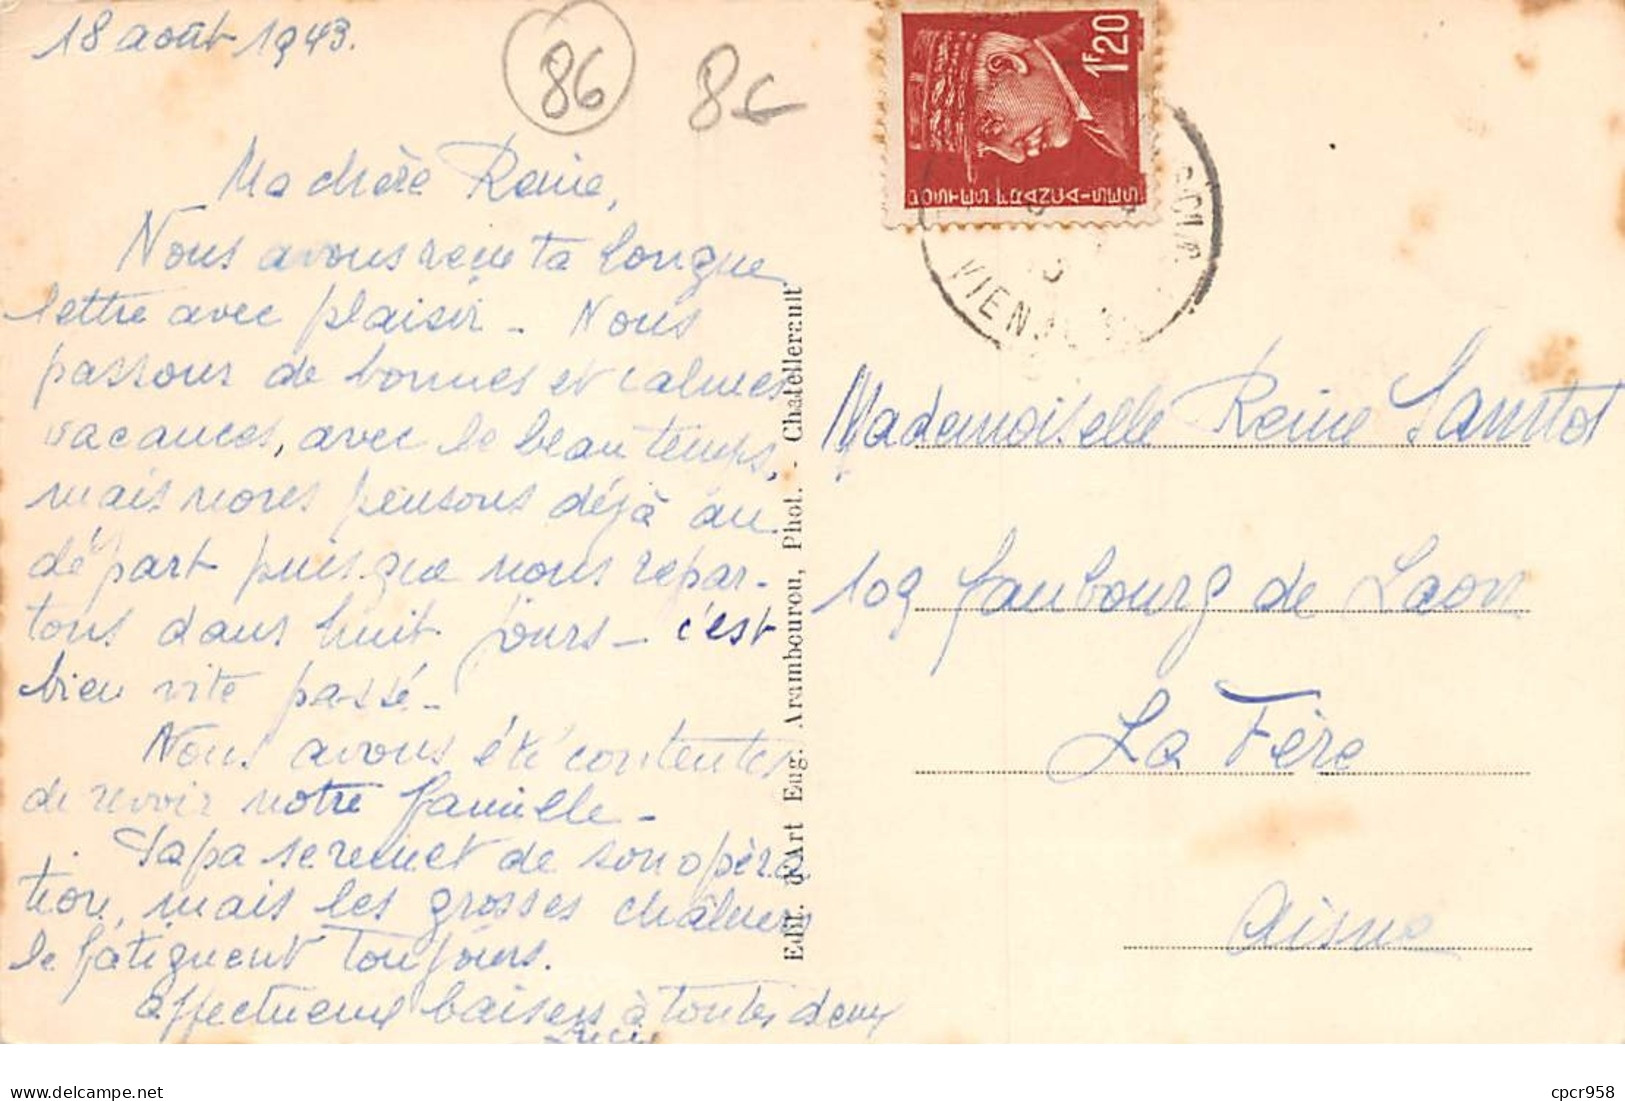 18 août 1943.
86
86
Ma chère Reine,
Nous avons reçu ta longue
lettre avec plaisir - Nous
passons de bonnes et calmes
vacances, avec le beau temps,
mais nous pensons déjà au
départ puisque nous repar-
tons dans huit jours - c'est
bien vite passé -
Nous avons été contentes
de revoir notre famille -
Papa se remet de son opéra
tion, mais les grosses chaleurs
le fatiguent toujours.
Affectueux baisers à toutes deux
Edit. d'Art Eug. Arambourou, Phot. - Chatellerault
1F20
POSTES FRANÇAISES
VIENNE
Mademoiselle Reine
109 faubourg de Laon
La Fère
Aisne
Delcampe.net
cpcr958